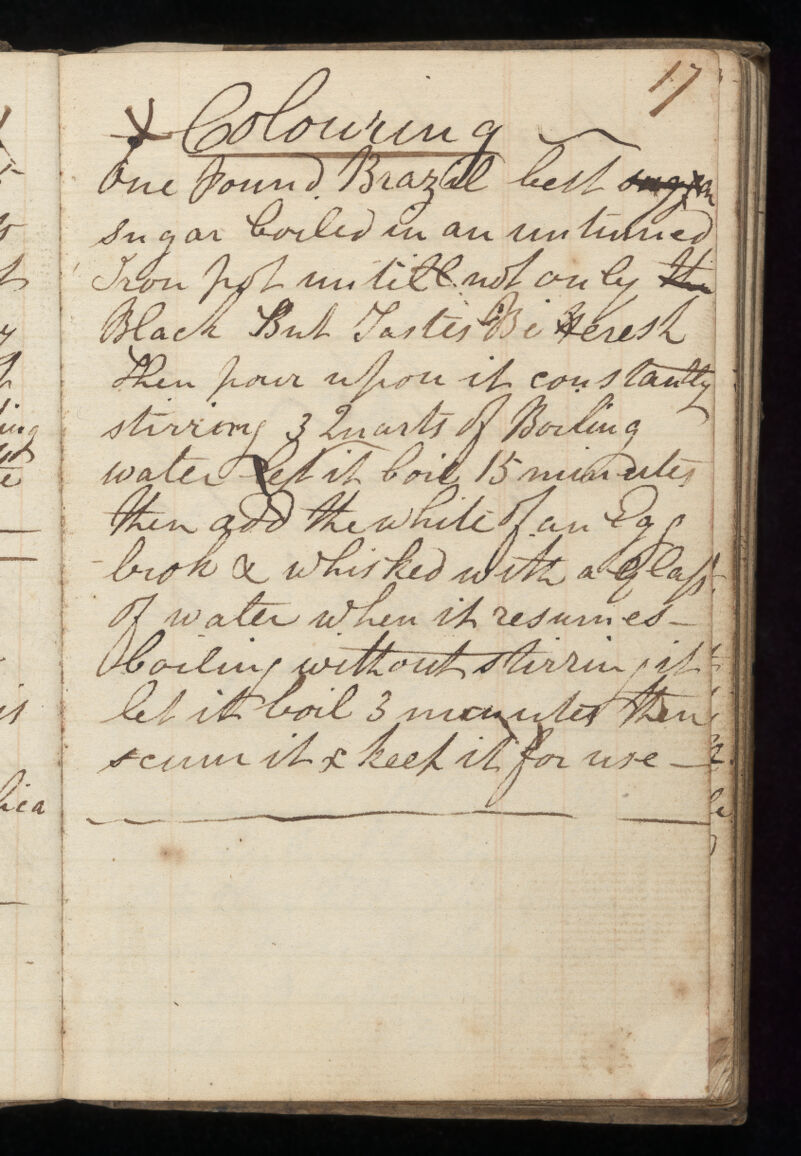 17
x Colouring
One pound Brazil best sugar
sugar boiled in an untinned
Iron pot untill not only the
Black But Tastes Bitteresh
then pour upon it constantly
stirring 3 Quarts of Boiling
water let it boil 15 minutes
then add the white of an Egg
brok & whisked with a Glass
of water when it resumes
boiling without stirring it
let it boil 3 minutes then
scum it & keep it for use